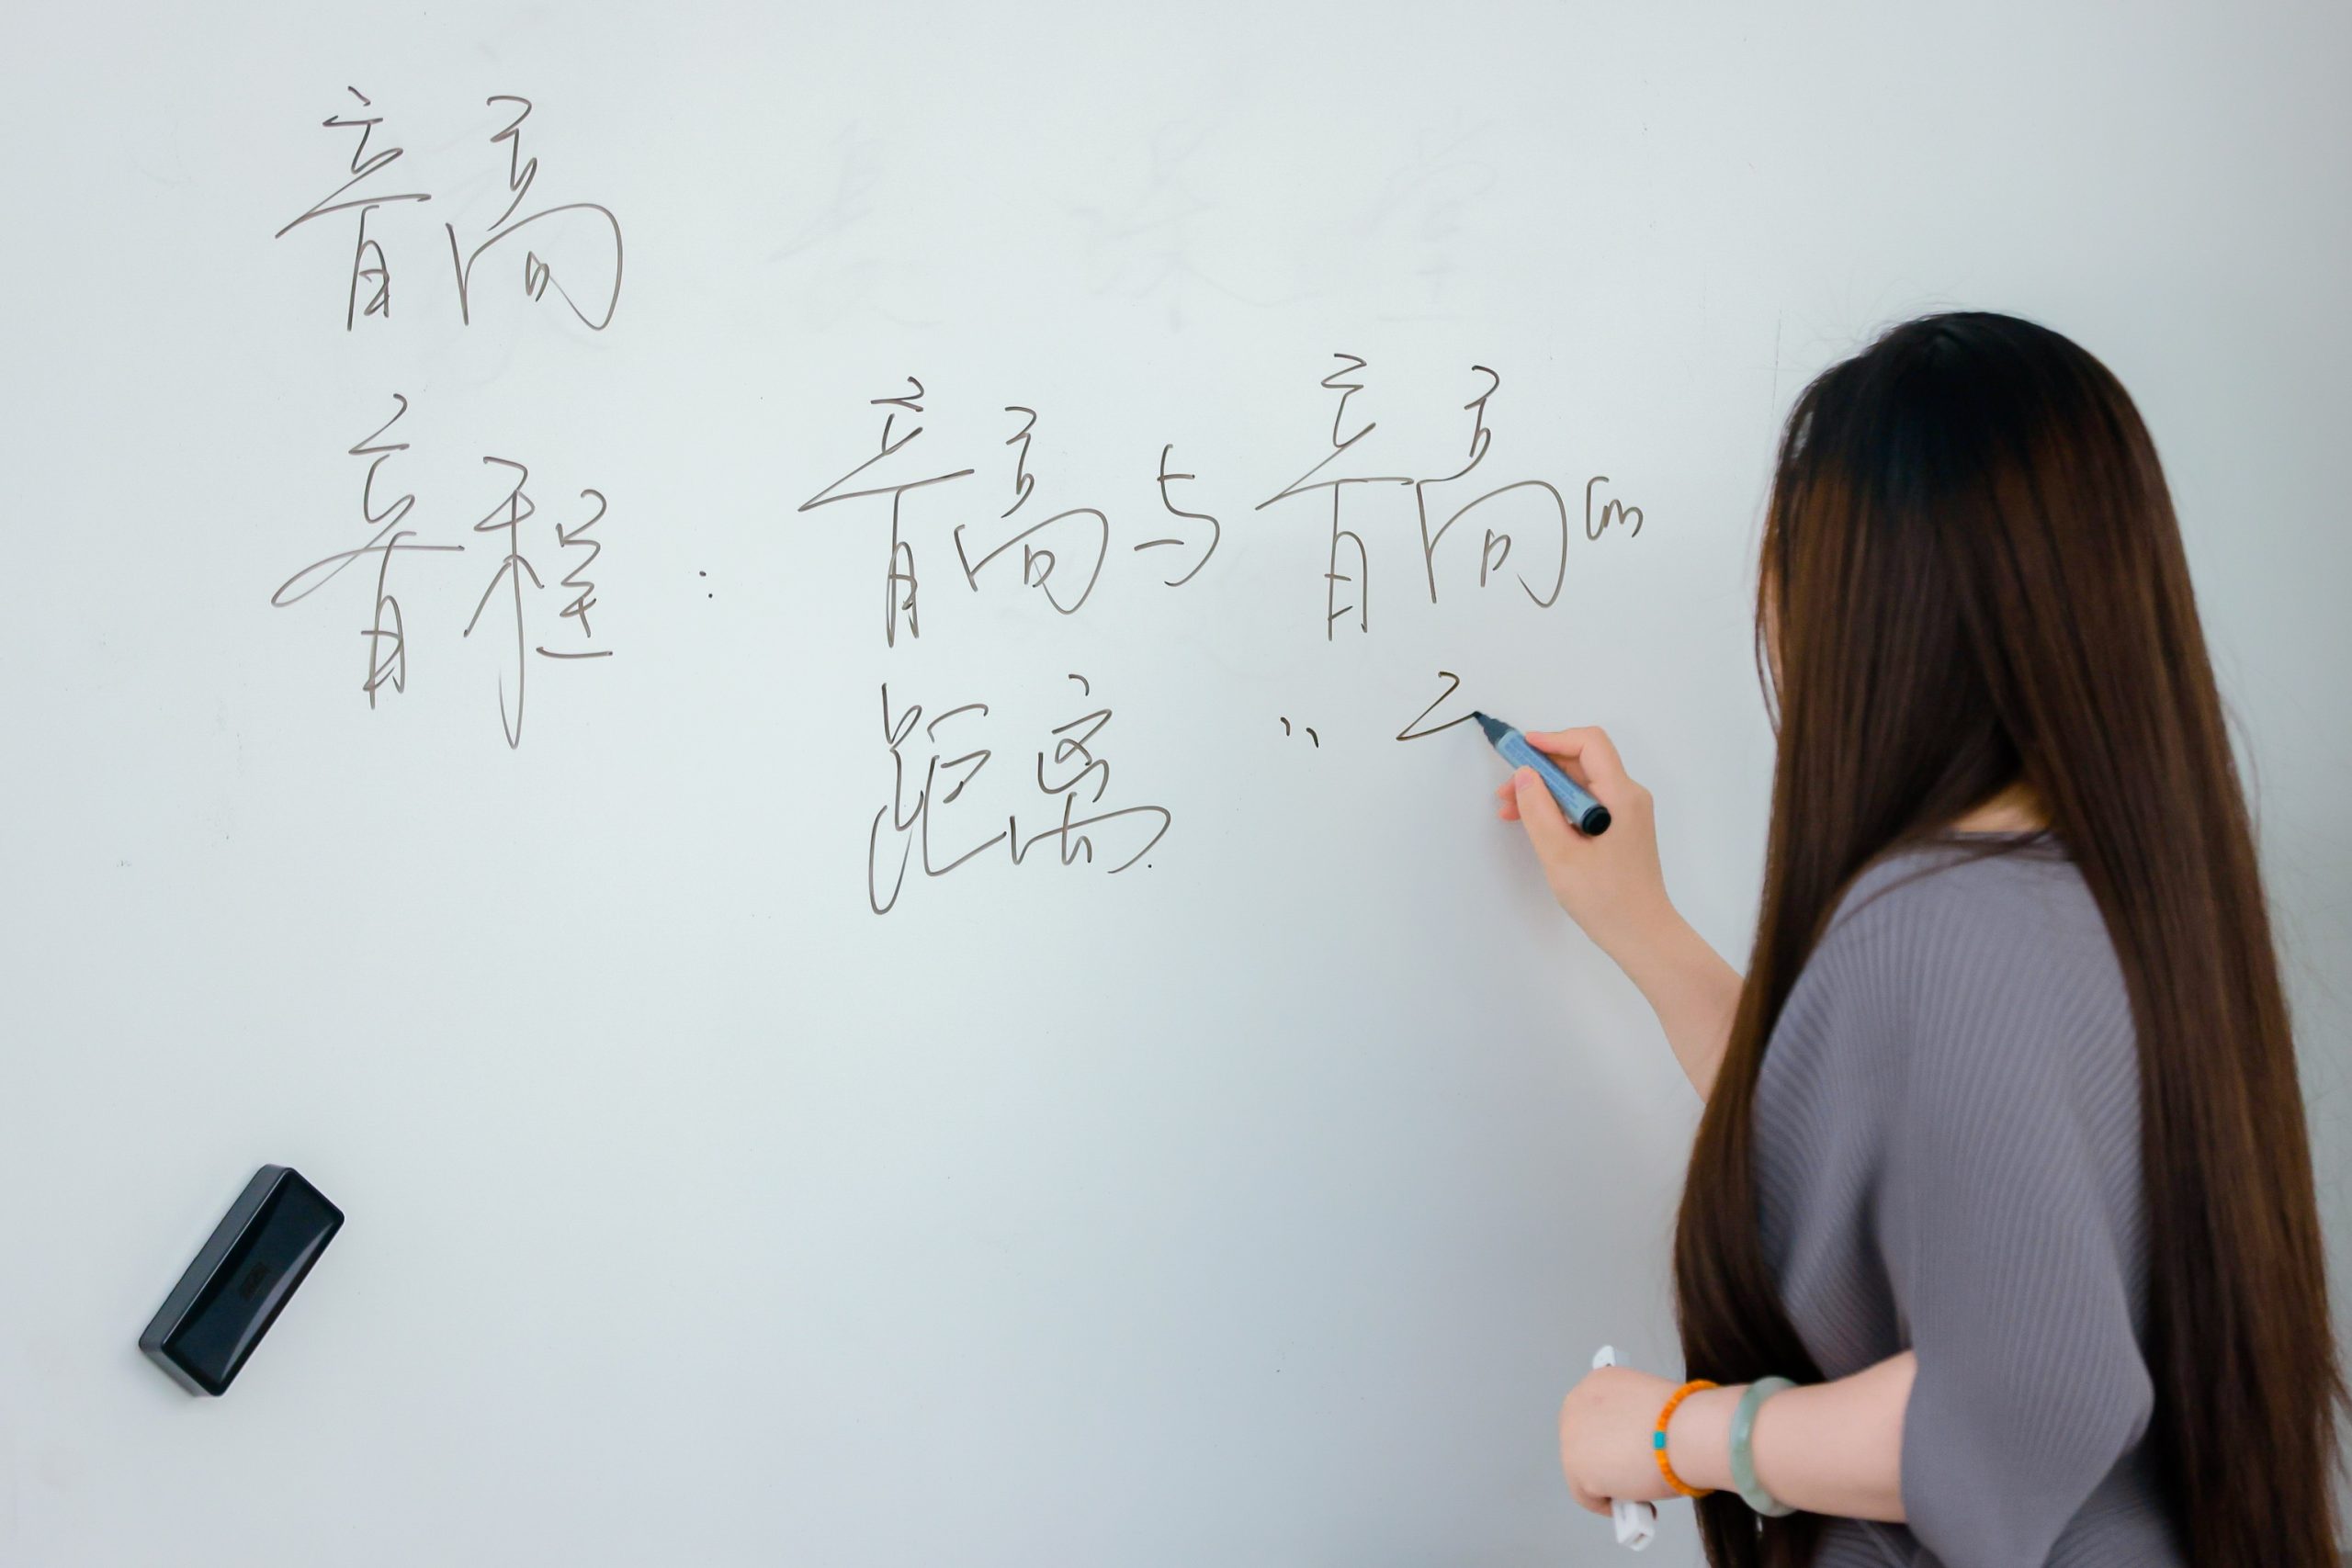 音高
音程：音高与音高的
距离. "